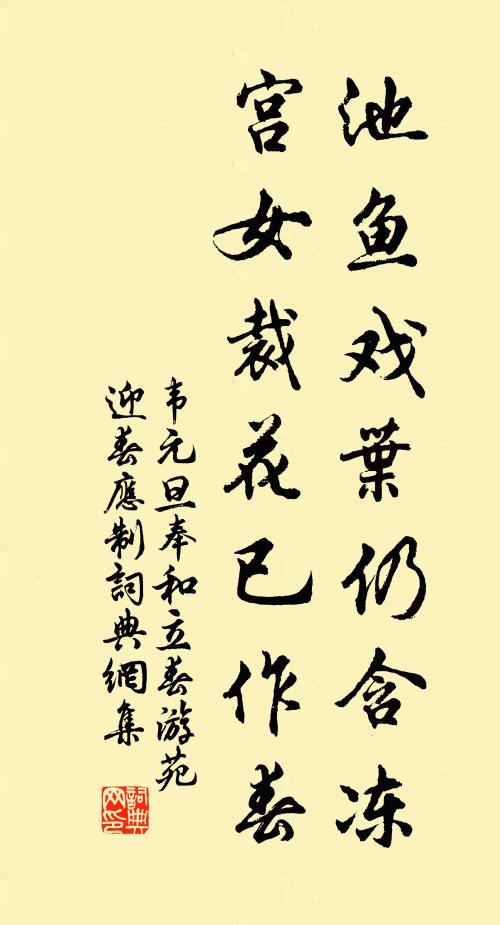 池鱼戏葉仍含冻
宫女裁花已作春
韦元旦奉和立春游苑
迎春應制詞典網集
詞典網印